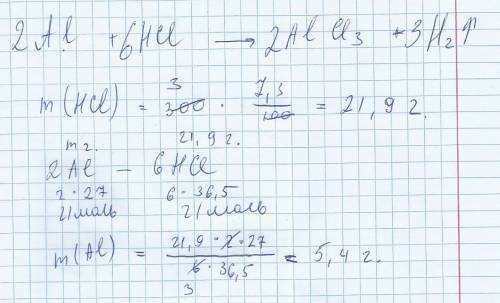 2Al + 6HCl → 2AlCl₃ + 3H₂↑
m(HCl) = 300 · 7,3/100 = 21,9 г.
3
m г. 21,9 г.
2Al – 6HCl
2·27 6·36,5
г/моль г/моль
m(Al) = 21,9·2·27/6·36,5 = 5,4 г.
3